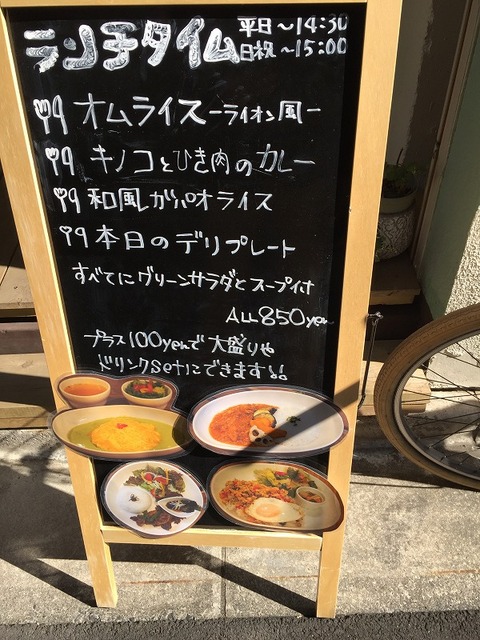 ランチタイム
平日~14:30
日祝~15:00
オムライス-ライオン風-
キノコとひき肉のカレー
和風ガパオライス
本日のデリプレート
すべてにグリーンサラダとスープ付
ALL 850yen
プラス100yenで大盛りや
ドリンクsetにできます!!